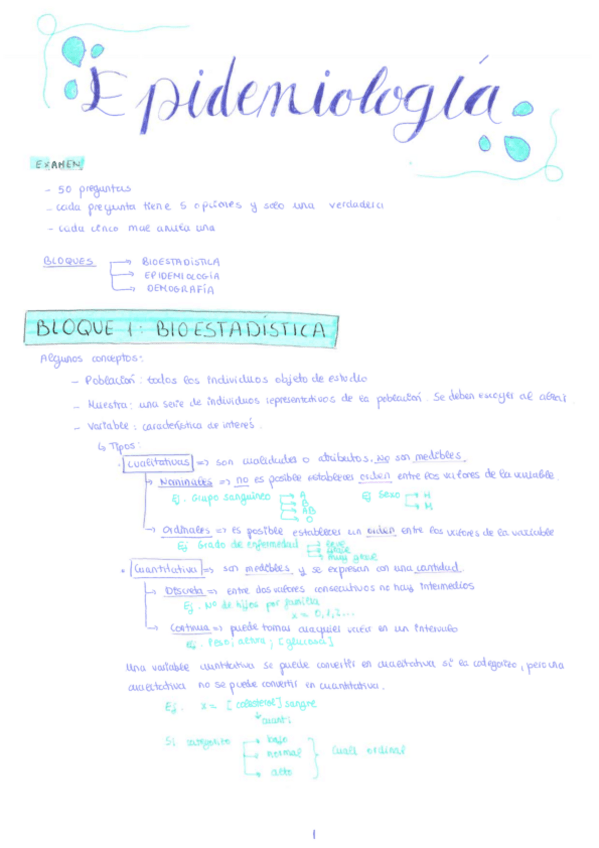 Epidemiología
EXAMEN
- 50 preguntas
- cada pregunta tiene 5 opciones y solo una verdadera
- cada cinco mal anula una
BLOQUES → BIOESTADÍSTICA
→ EPIDEMIOLOGÍA
→ DEMOGRAFÍA
BLOQUE 1: BIOESTADÍSTICA
Algunos conceptos:
- Población: todos los individuos objeto de estudio
- Muestra: una serie de individuos representativos de la población. Se deben escoger al azar
- Variable: característica de interés.
↳ Tipos:
· Cualitativas => son cualidades o atributos. No son medibles.
→ Nominales => no es posible establecer orden entre los valores de la variable
Ej. Grupo sanguíneo → A Ej Sexo → H
→ B → M
→ AB
→ O
→ Ordinales => es posible establecer un orden entre los valores de la variable
Ej Grado de enfermedad → leve
→ grave
→ muy grave
· Cuantitativa => son medibles y se expresan con una cantidad.
→ Discreta => entre dos valores consecutivos no hay intermedios
Ej. Nº de hijos por familia
x = 0,1,2...
→ Continua => puede tomar cualquier valor en un intervalo
Ej. Peso, altura, [glucosa]
Una variable cuantitativa se puede convertir en cualitativa si la categorizo, pero una
cualitativa no se puede convertir en cuantitativa.
Ej. x = [colesterol] sangre
↓ cuanti
Si categorizo → bajo
→ normal } Cuali ordinal
→ alto
1